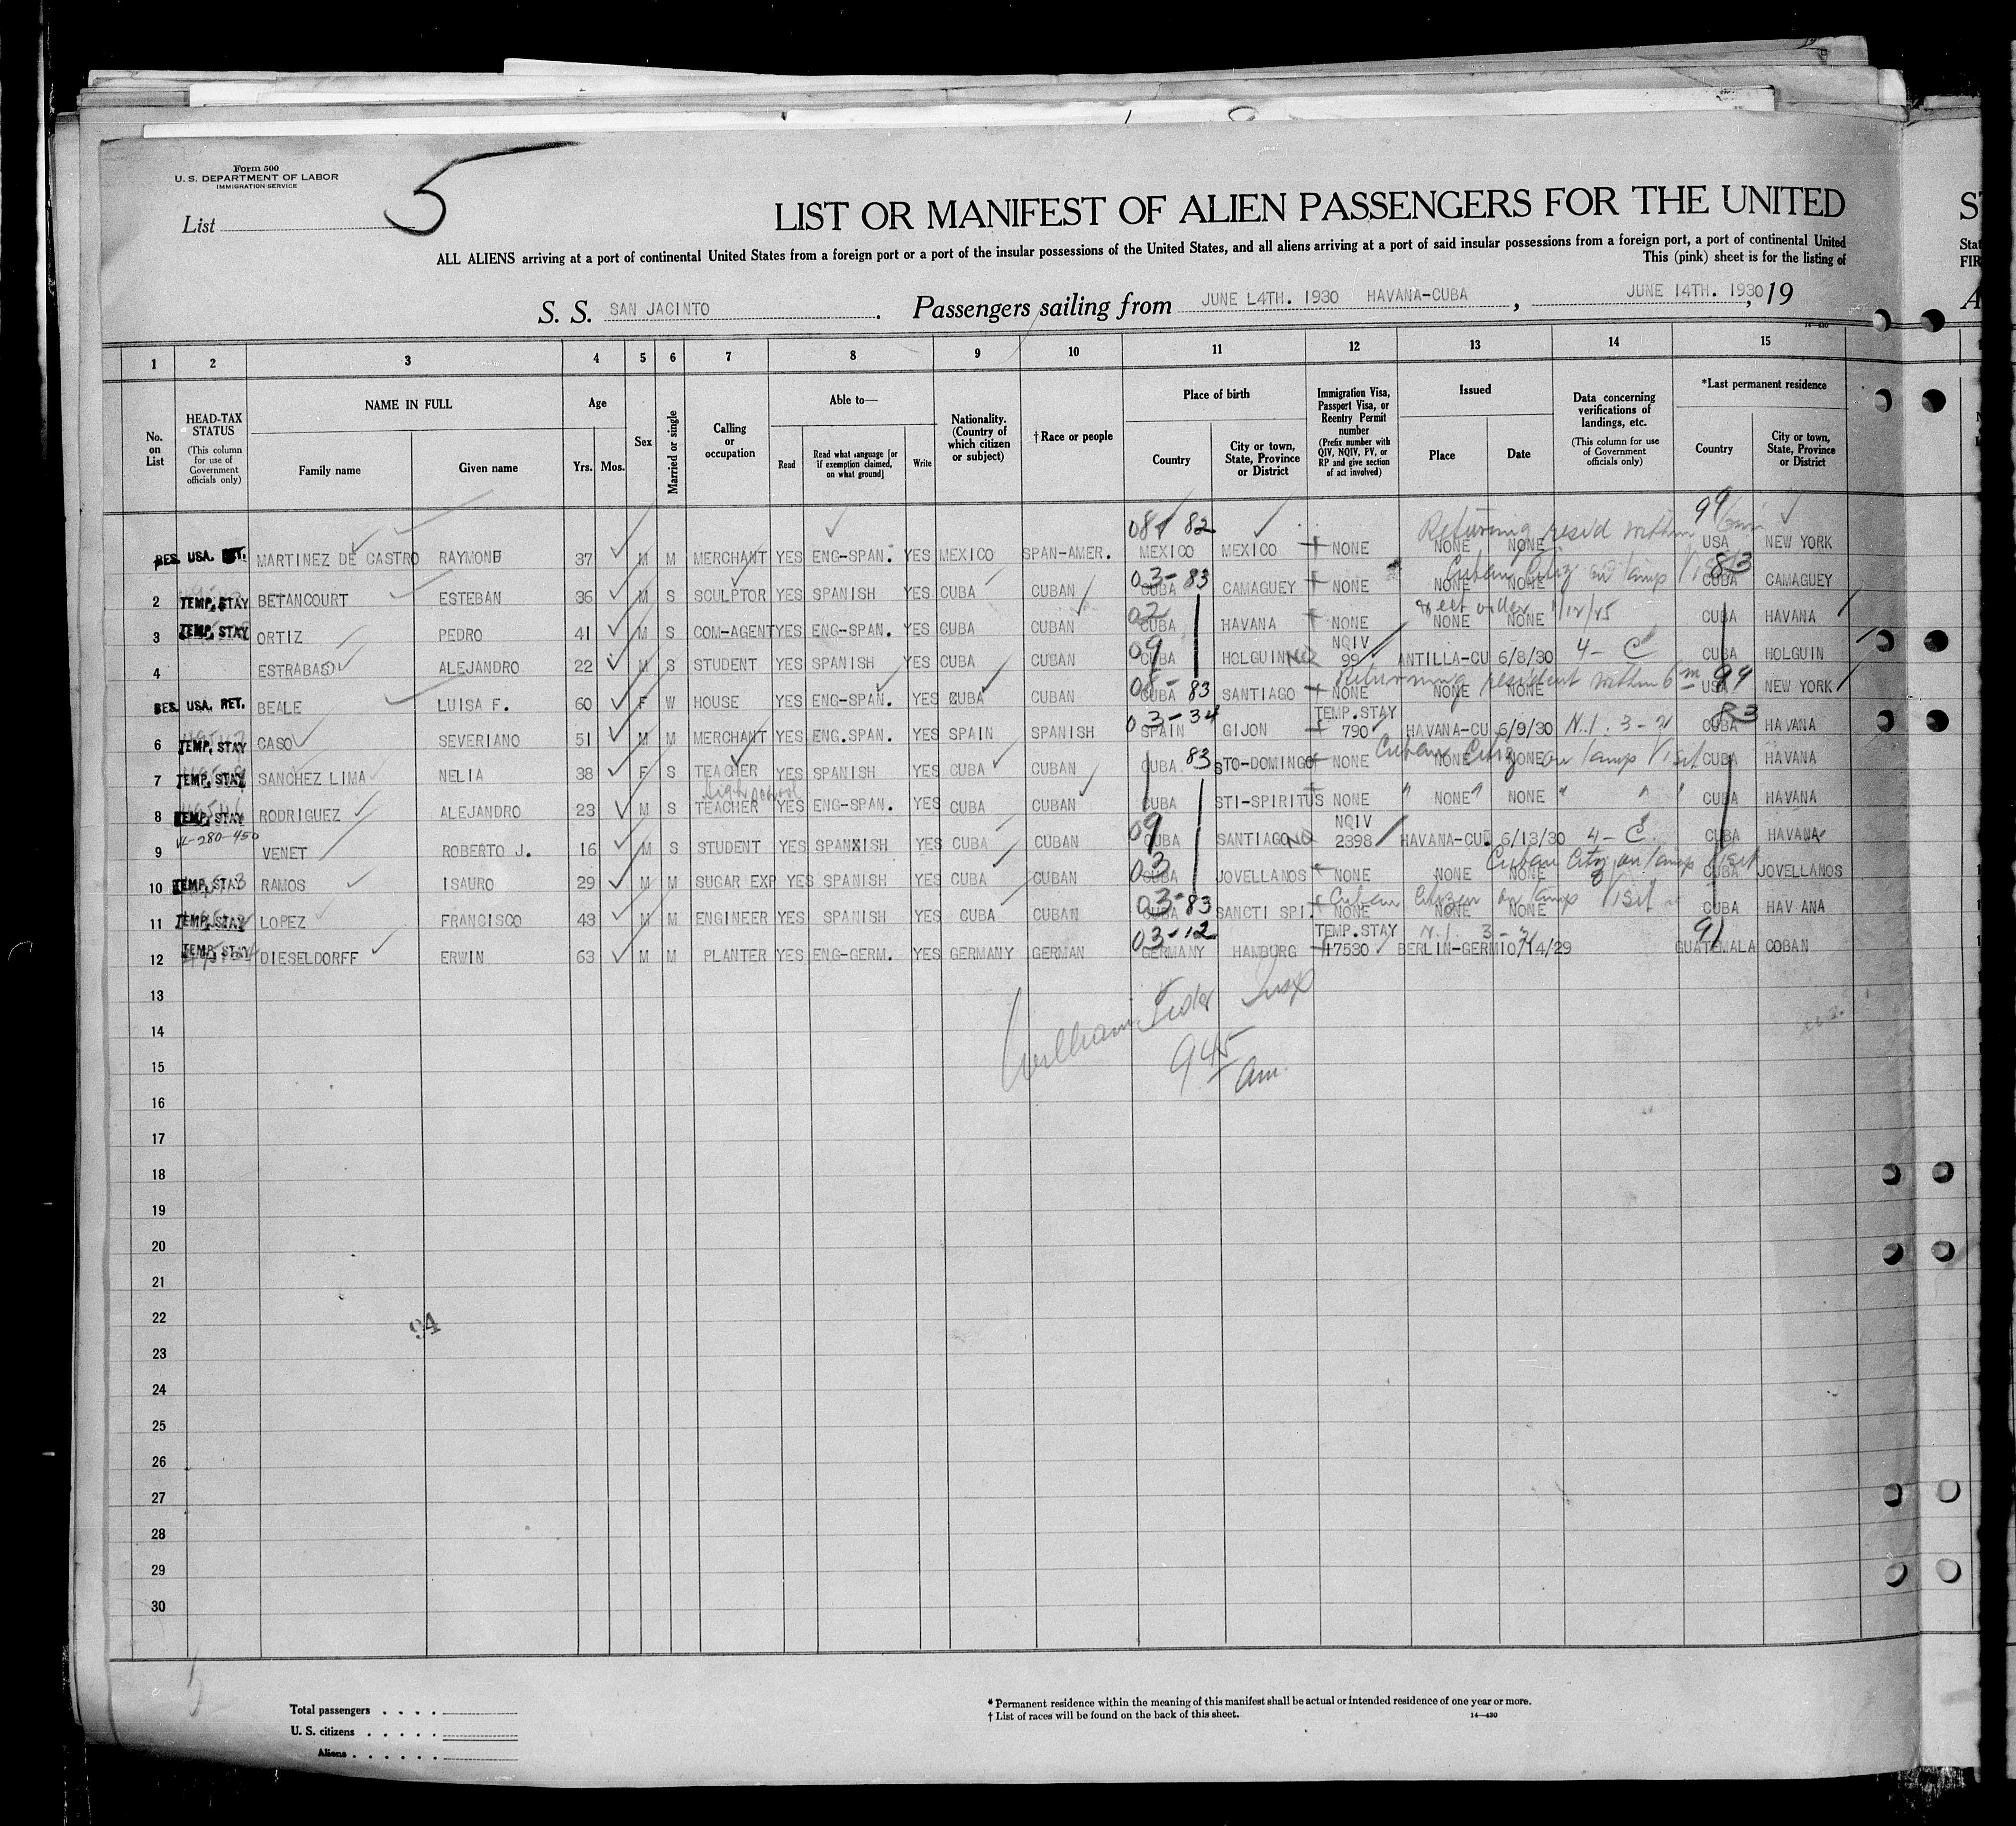 Form 500
U. S. DEPARTMENT OF LABOR
IMMIGRATION SERVICE
List 5
LIST OR MANIFEST OF ALIEN PASSENGERS FOR THE UNITED
ALL ALIENS arriving at a port of continental United States from a foreign port or a port of the insular possessions of the United States, and all aliens arriving at a port of said insular possessions from a foreign port, a port of continental United
This (pink) sheet is for the listing of
S. S. SAN JACINTO. Passengers sailing from JUNE L4TH. 1930 HAVANA-CUBA, JUNE 14TH. 1930, 19
14—430
1 2 3 4 5 6 7 8 9 10 11 12 13 14 15
No. on List
HEAD-TAX STATUS (This column for use of Government officials only)
NAME IN FULL
Family name Given name
Age
Yrs. Mos.
Sex
Married or single
Calling or occupation
Able to—
Read Read what language [or if exemption claimed, on what ground] Write
Nationality. (Country of which citizen or subject)
† Race or people
Place of birth
Country City or town, State, Province or District
Immigration Visa, Passport Visa, or Reentry Permit number (Prefix number with QIV, NQIV, PV, or RP and give section of act involved)
Issued
Place Date
Data concerning verifications of landings, etc. (This column for use of Government officials only)
*Last permanent residence
Country City or town, State, Province or District
82 Returning resid within 99
RES. USA. RET. MARTINEZ DE CASTRO RAYMOND 37 M M MERCHANT YES ENG-SPAN. YES MEXICO SPAN-AMER. MEXICO MEXICO NONE NONE NONE USA NEW YORK
03-83 Cuban Citiz on temp Visit 83
2 TEMP. STAY BETANCOURT ESTEBAN 36 M S SCULPTOR YES SPANISH YES CUBA CUBAN CUBA CAMAGUEY NONE NONE NONE CUBA CAMAGUEY
02 1/12/25
3 TEMP. STAY ORTIZ PEDRO 41 M S COM-AGENT YES ENG-SPAN. YES CUBA CUBAN CUBA HAVANA NONE NONE NONE CUBA HAVANA
09 NQIV
4 ESTRABAO ALEJANDRO 22 M S STUDENT YES SPANISH YES CUBA CUBAN CUBA HOLGUIN NQ 99 ANTILLA-CU 6/8/30 4- C CUBA HOLGUIN
83 Returning resident within 6 m 99
RES. USA. RET. BEALE LUISA F. 60 F W HOUSE YES ENG-SPAN. YES CUBA CUBAN CUBA SANTIAGO NONE NONE NONE USA NEW YORK
03-34 TEMP.STAY 83
6 TEMP. STAY CASO SEVERIANO 51 M M MERCHANT YES ENG.SPAN. YES SPAIN SPANISH SPAIN GIJON 790 HAVANA-CU 6/9/30 N.I. 3-2 CUBA HAVANA
83 Cuban Citiz on temp Visit
7 TEMP. STAY SANCHEZ LIMA NELIA 38 F S TEACHER YES SPANISH YES CUBA CUBAN CUBA STO-DOMINGO NONE NONE NONE CUBA HAVANA
High School
8 TEMP. STAY RODRIGUEZ ALEJANDRO 23 M S TEACHER YES ENG-SPAN. YES CUBA CUBAN CUBA STI-SPIRITUS NONE " NONE " NONE " " " CUBA HAVANA
VL-280-450 09 NQIV
9 VENET ROBERTO J. 16 M S STUDENT YES SPANXISH YES CUBA CUBAN CUBA SANTIAGO NQ 2398 HAVANA-CU. 6/13/30 4- C CUBA HAVANA
03 Cuban Citiz on temp Visit
10 TEMP. STAY RAMOS ISAURO 29 M M SUGAR EXP YES SPANISH YES CUBA CUBAN CUBA JOVELLANOS NONE NONE NONE CUBA JOVELLANOS
03-83 Cuban Citizen on temp Visit
11 TEMP. STAY LOPEZ FRANCISCO 43 M M ENGINEER YES SPANISH YES CUBA CUBAN CUBA SANCTI SPI. NONE NONE NONE CUBA HAVANA
03-12 TEMP.STAY N.I. 3-2 91
12 TEMP. STAY DIESELDORFF ERWIN 63 M M PLANTER YES ENG-GERM. YES GERMANY GERMAN GERMANY HAMBURG 17530 BERLIN-GERM 10/14/29 GUATEMALA COBAN
13
14 William Insp
15 9 45 am.
16
17
18
19
20
21
22
94
23
24
25
26
27
28
29
30
Total passengers . . . .
U. S. citizens . . . . .
Aliens . . . . . .
* Permanent residence within the meaning of this manifest shall be actual or intended residence of one year or more.
† List of races will be found on the back of this sheet. 14—430